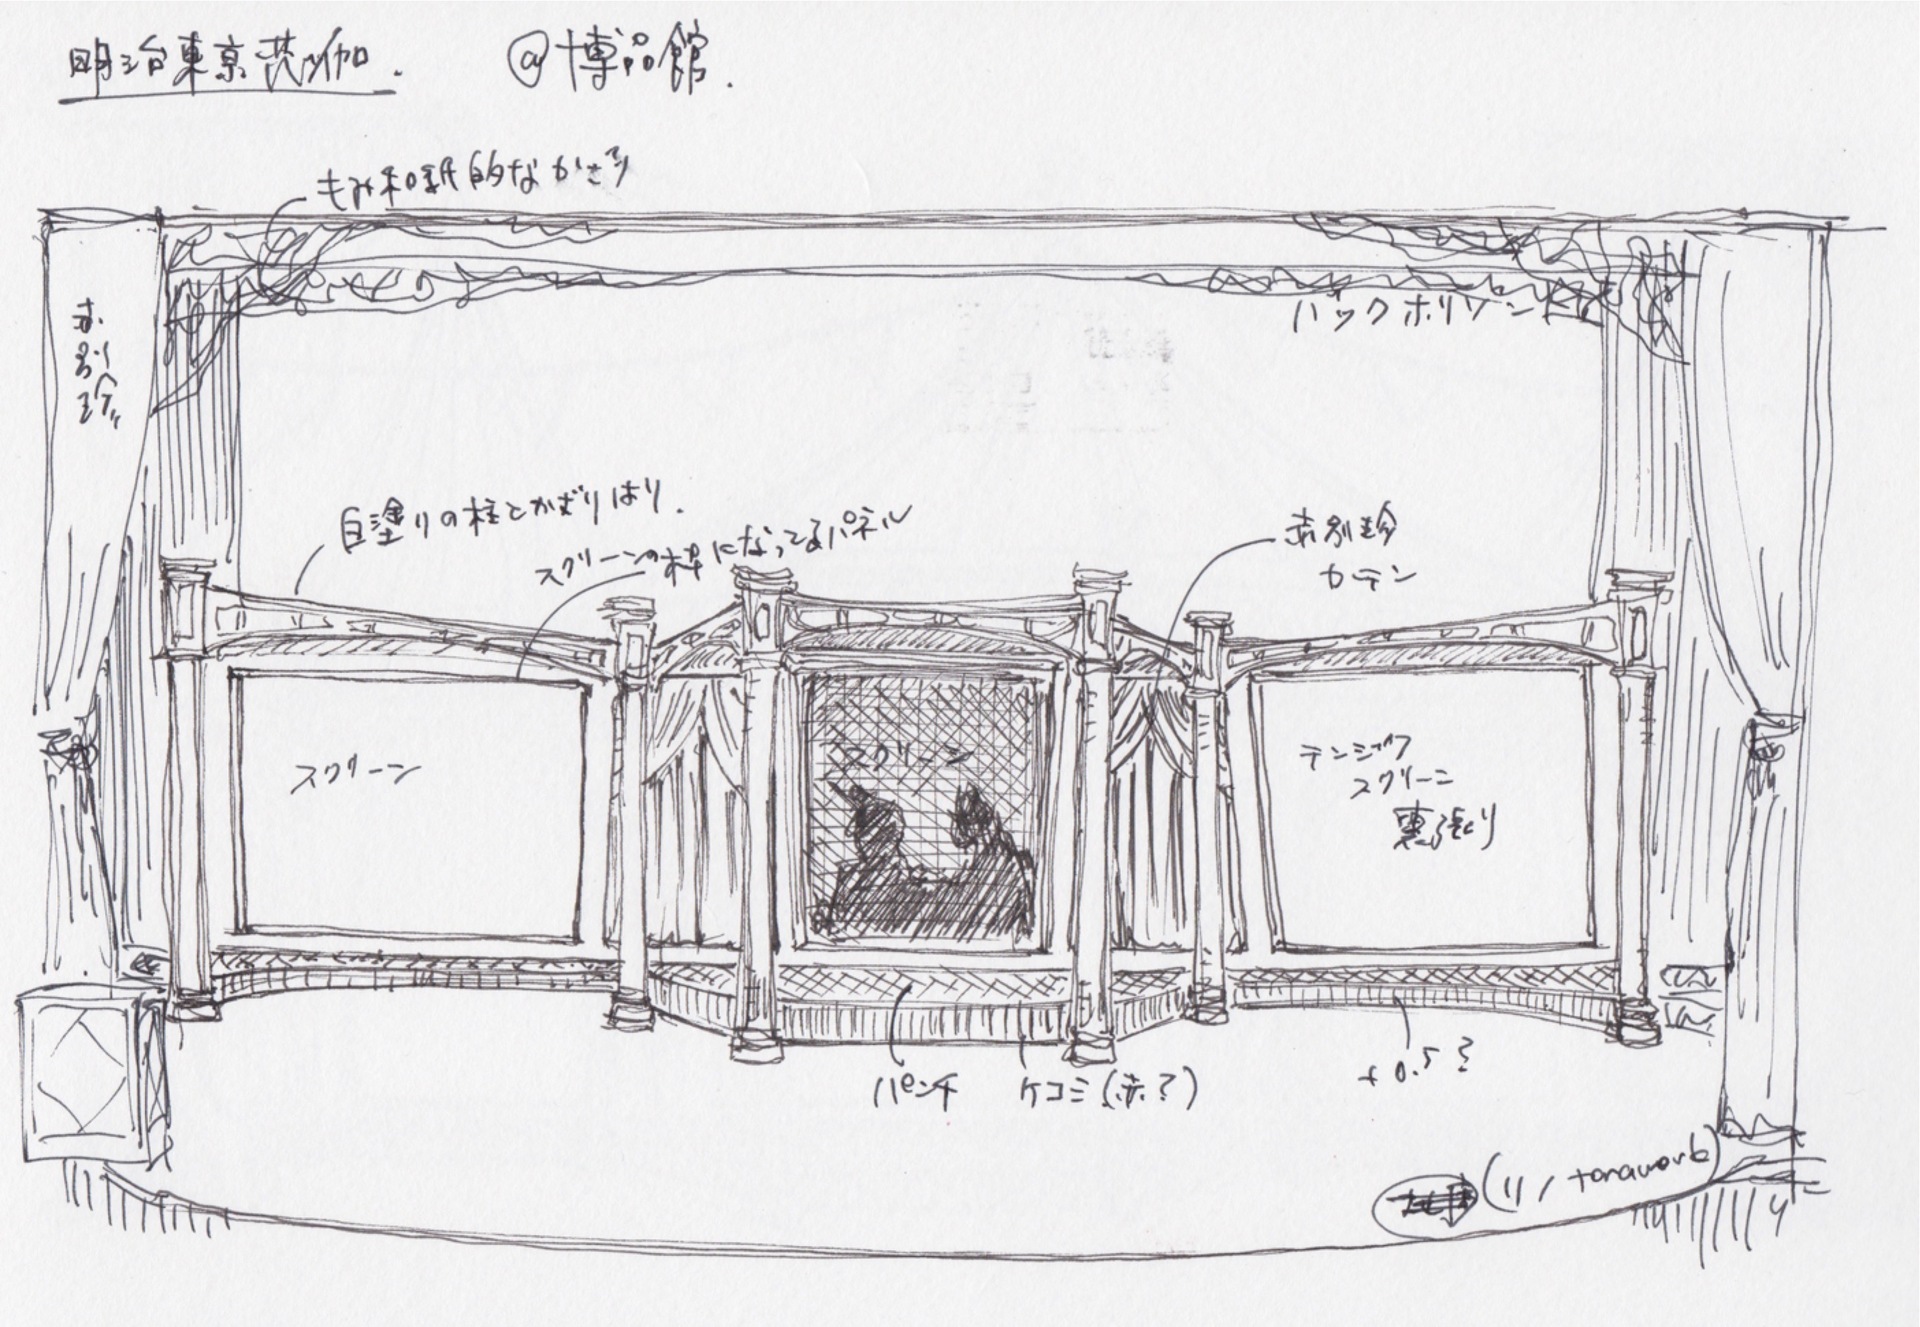 明治東京恋伽.
@博品館.
もみ和紙的なかざり
赤別珍
バックホリゾント
白塗りの柱とかざりはり.
スクリーンの枠になってるパネル
赤別珍
カーテン
スクリーン
スクリーン
テンション
スクリーン
裏張り
パンチ
ケコミ(赤?)
+0.5?